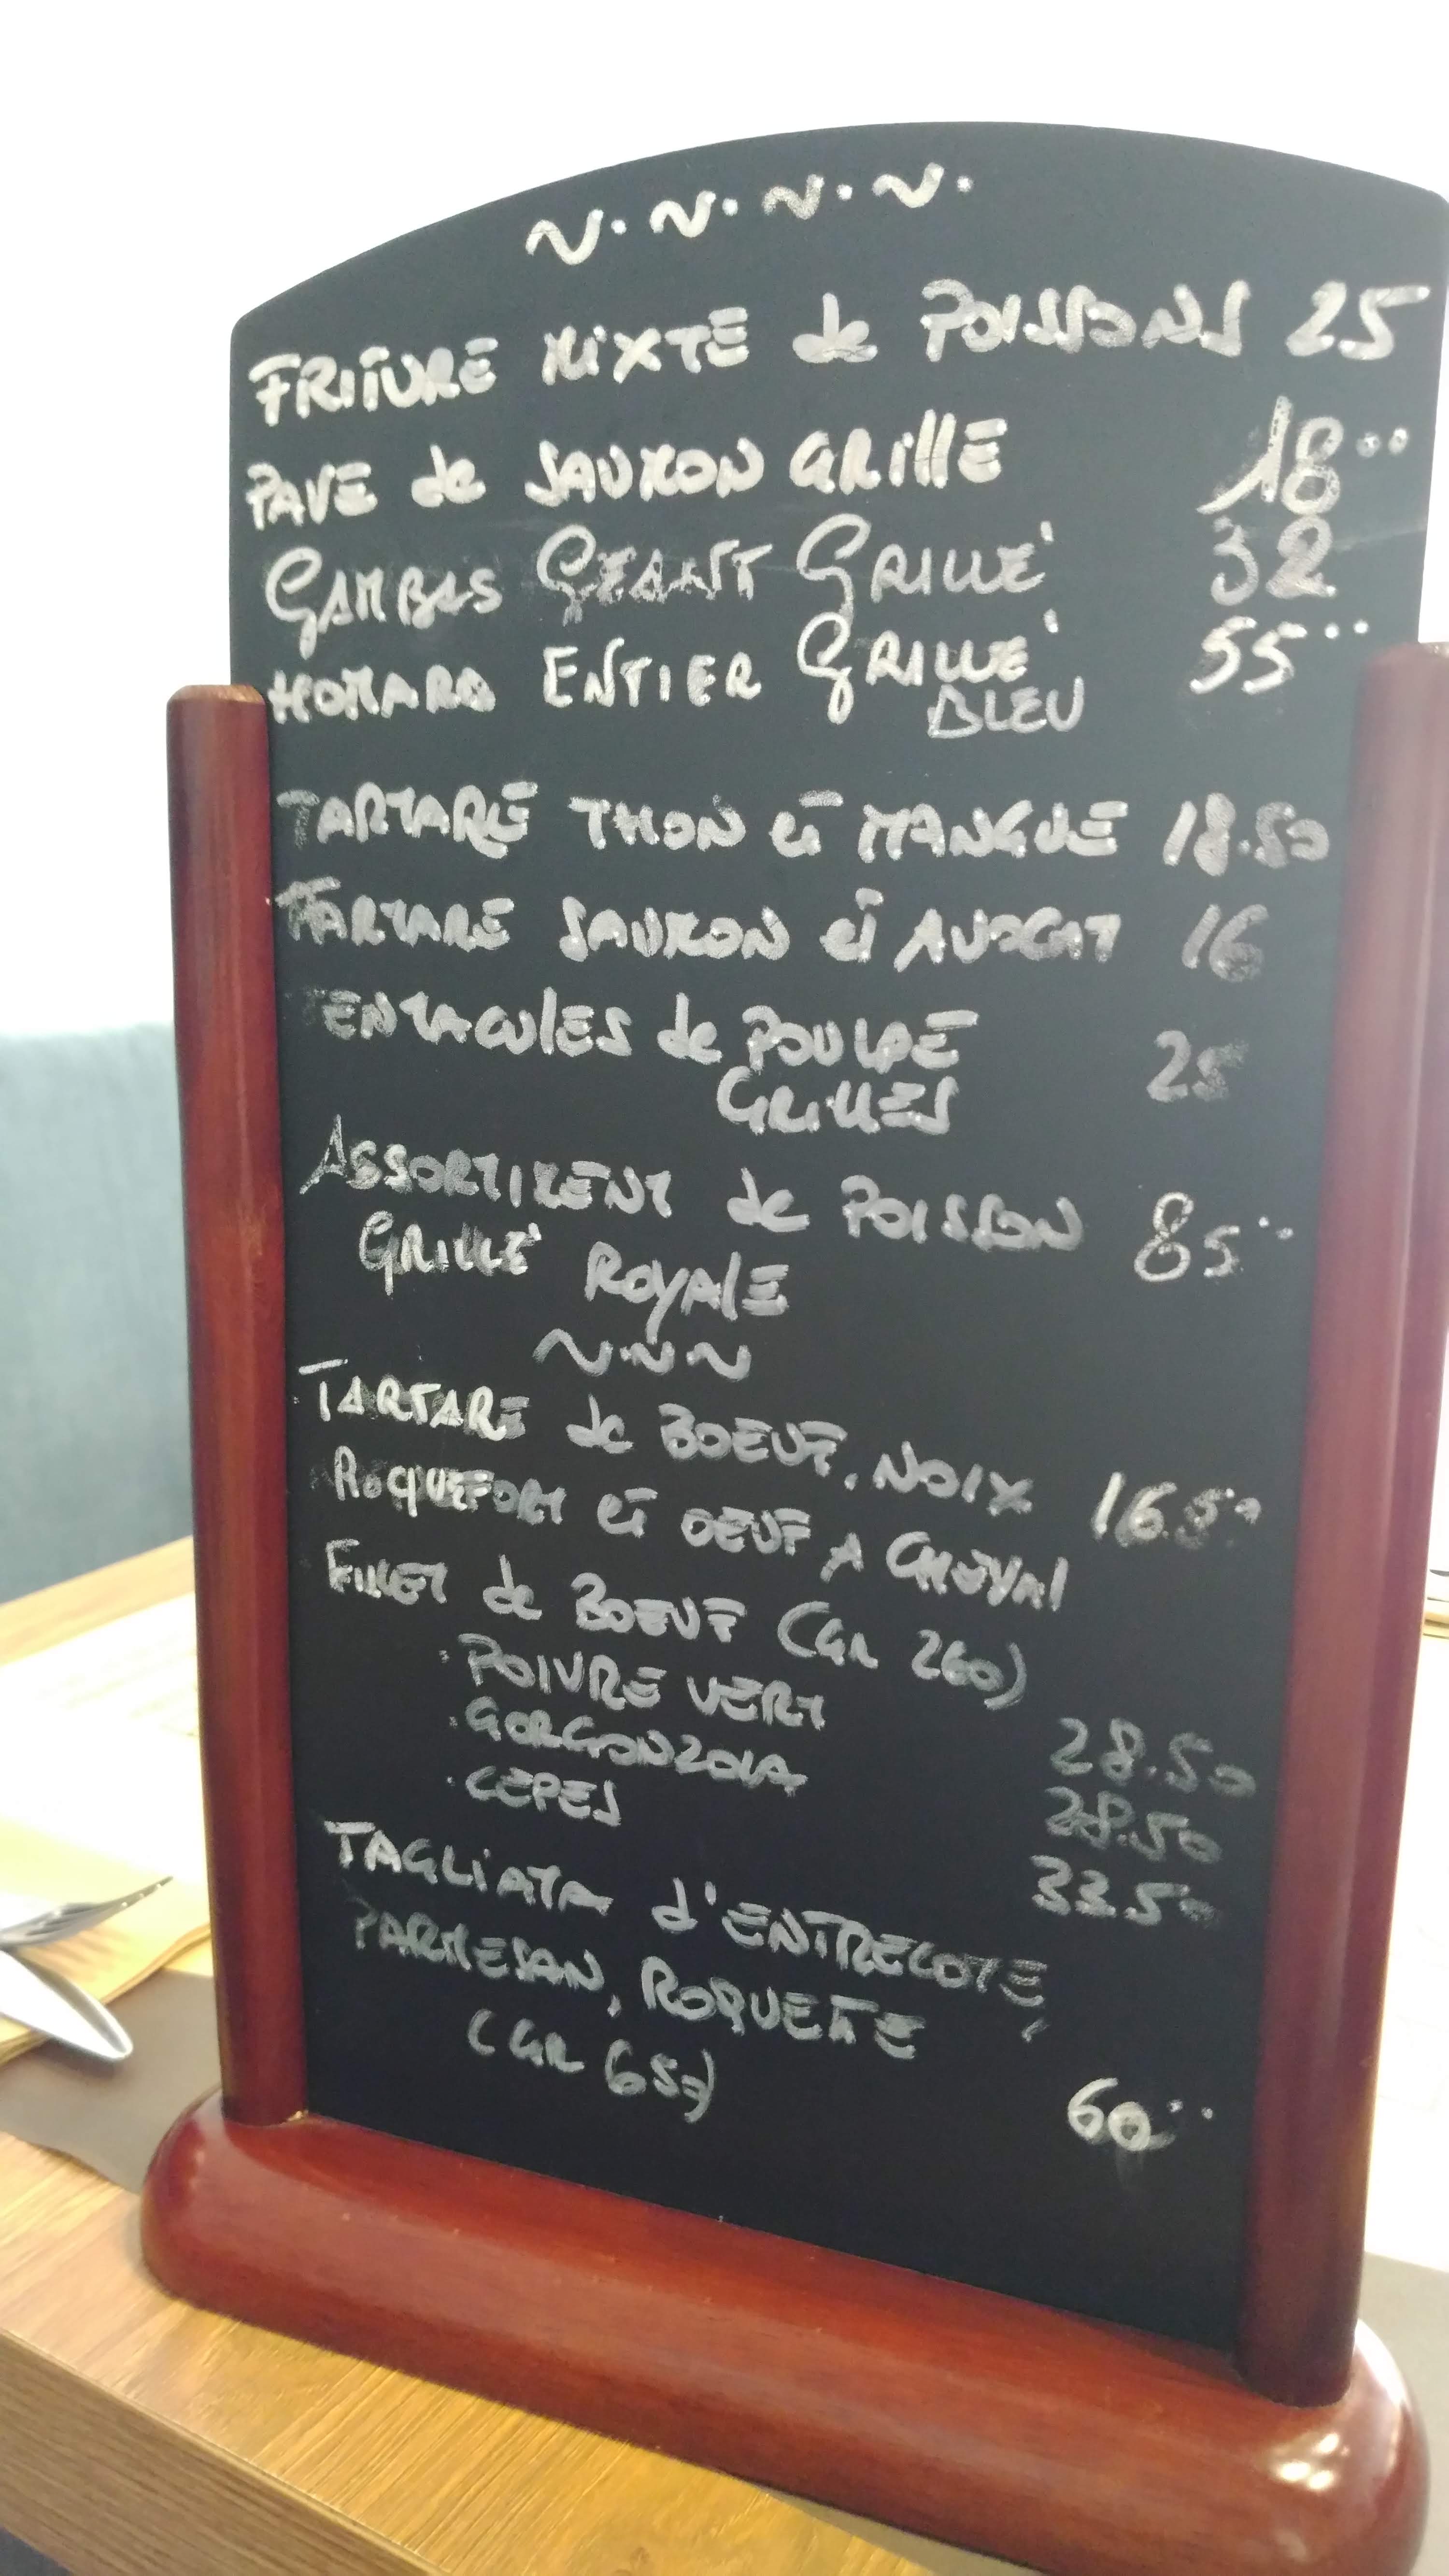 FRITURE MIXTE de POISSONS 25
PAVE de SAUMON GRILLE 18
GAMBAS GEANT GRILLÉ 32
HOMARD ENTIER GRILLÉ 55
BLEU
TARTARE THON et MANGUE 18.50
TARTARE SAUMON et AVOCAT 16
TENTACULES de POULPE 25
GRILLES
ASSORTIMENT de POISSON 85
GRILLÉ ROYALE
TARTARE de BOEUF, NOIX 16.50
ROQUEFORT et OEUF A CHEVAL
FILLET de BOEUF (GR 260)
· POIVRE VERT 28.50
· GORGONZOLA 28.50
· CEPES 33.50
TAGLIATA d'ENTRECOTE,
PARMESAN, ROQUETTE
(GR 650) 60